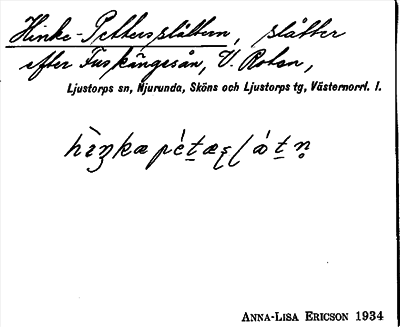 Hinke-Pettersslåttern, slåtter
efter Fuskängesån, V. Rotsn,
Ljustorps sn, Njurunda, Sköns och Ljustorps tg, Västernorrl. l.
ANNA-LISA ERICSON 1934